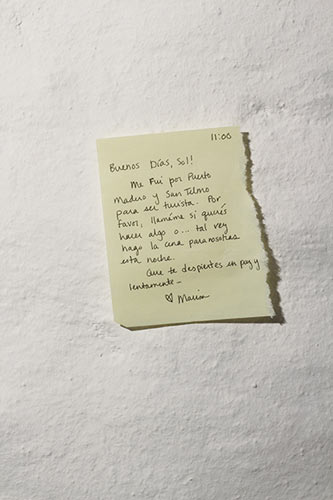 11:00
Buenos Días, Sol!
Me Fui por Puerto
Madero y San Telmo
para ser turista. Por
favor, llaméme si quirés
hacer algo o... tal vez
hago la cena para nosotras
esta noche.
Que te despiertes en paz y
lentamente -
♡ Marion